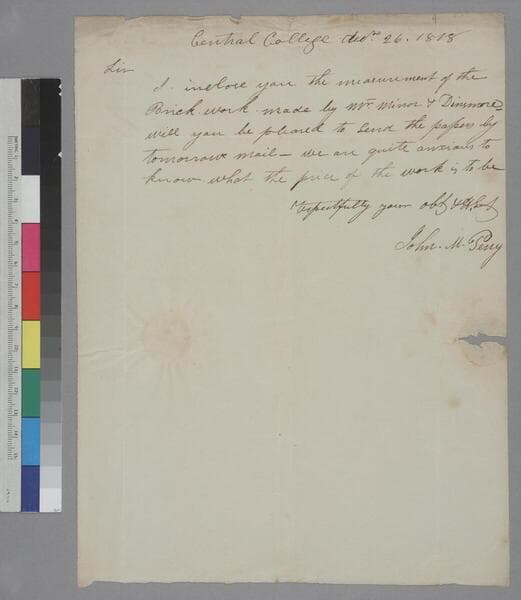 Central College Decr. 26. 1818
Sir
I inclose you the measurement of the
Brick work made by Mr. Minor & Dinsmore
will you be pleased to send the papers by
tomorrows mail – we are quite anxious to
know what the price of the work is to be
respectfully your obt
John. M. Perry